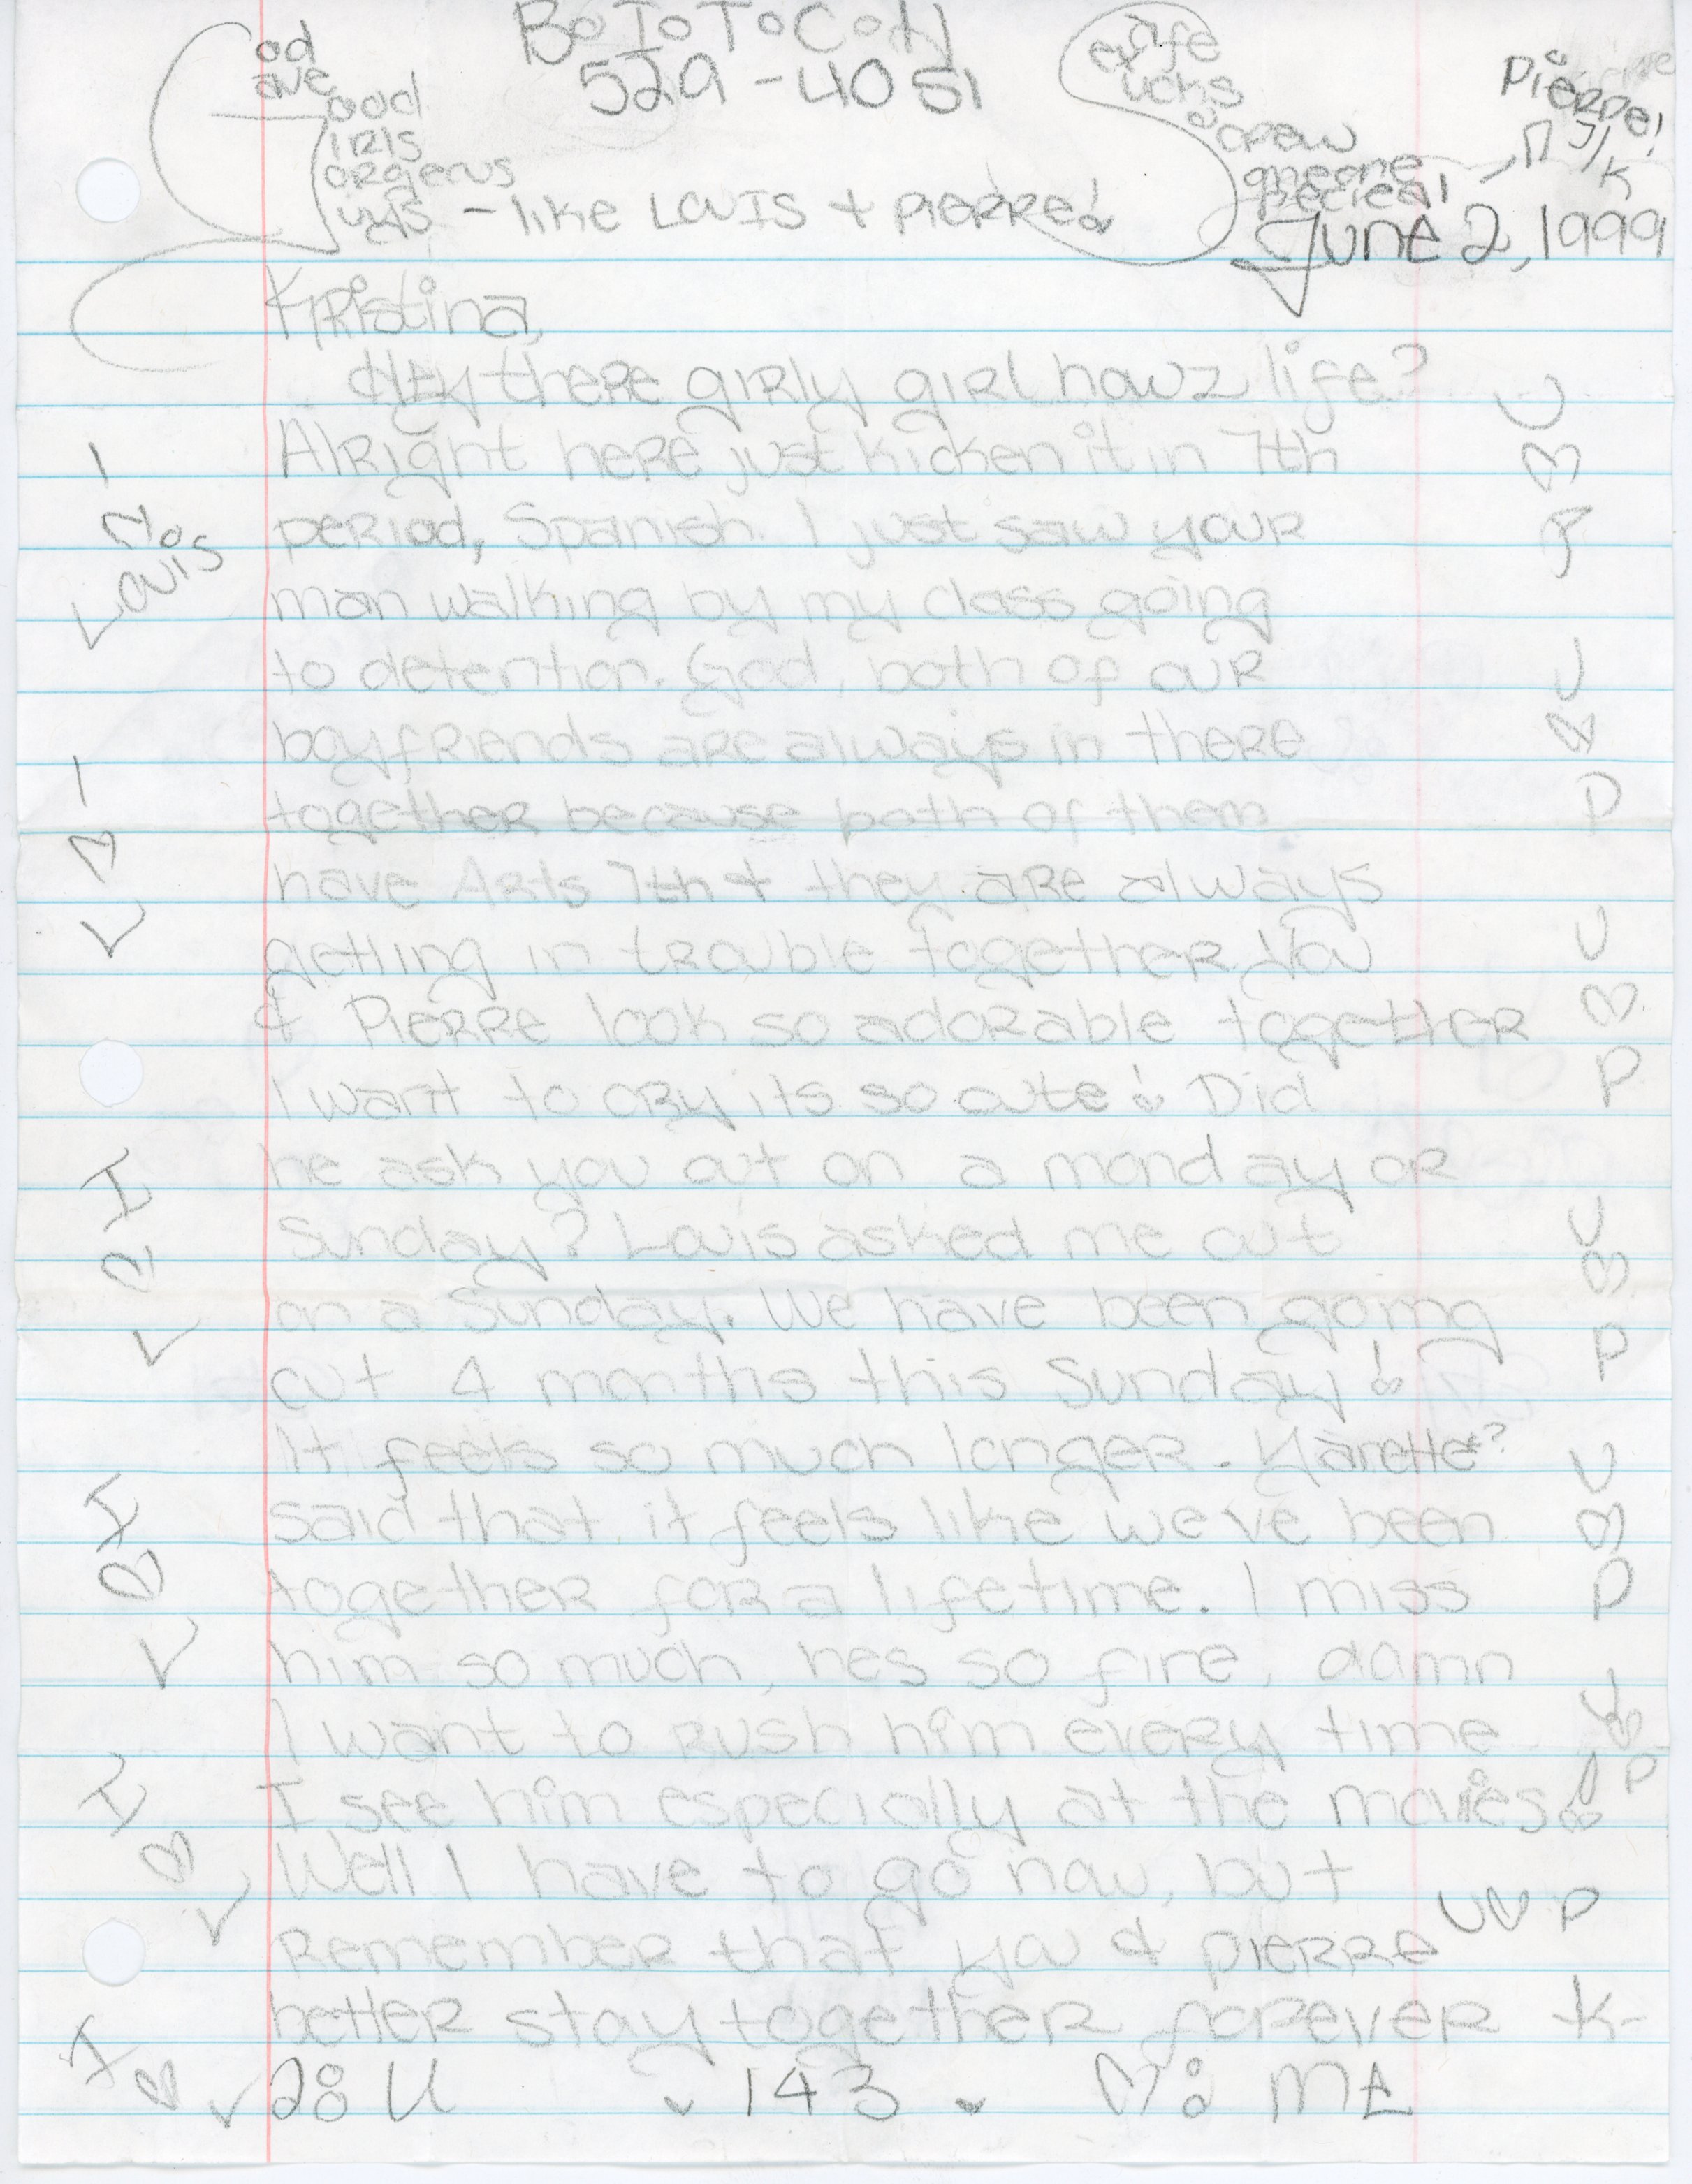 B.I.T.C.H
529-4051
God
Gave
Good
Girls
Gorgeous
Guys - like Louis + Pierre!
Life
Sucks
So
Screw
Someone
Special
Pierre!
J/K
June 2, 1999
Kristina,
Hey there girly girl howz life?
Alright here just kicken it in 7th
period, Spanish. I just saw your
man walking by my class going
to detention. God, both of our
boyfriends are always in there
together because both of them
have Arts 7th & they are always
getting in trouble together. You
& Pierre look so adorable together
I want to cry its so cute! Did
he ask you out on a monday or
Sunday? Louis asked me out
on a Sunday. We have been going
out 4 months this Sunday!
It feels so much longer. Yarette?
said that it feels like we've been
together for a lifetime. I miss
him so much, hes so fine, damn
I want to rush him every time
I see him especially at the movies!
Well I have to go now, but
Remember that you & pierre
better stay together forever K-
2: U ♥ 143 ♥ ♥: ME
I ♥ Louis
I ♥ L
I ♥ L
I ♥ L
I ♥ L
I ♥ L
U ♥ P
U ♥ P
U ♥ P
U ♥ P
U ♥ P
U ♥ P
U ♥ P